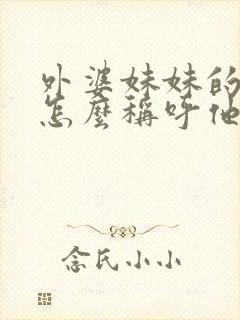 外婆妹妹的
怎麼稱呼他
念氏小小